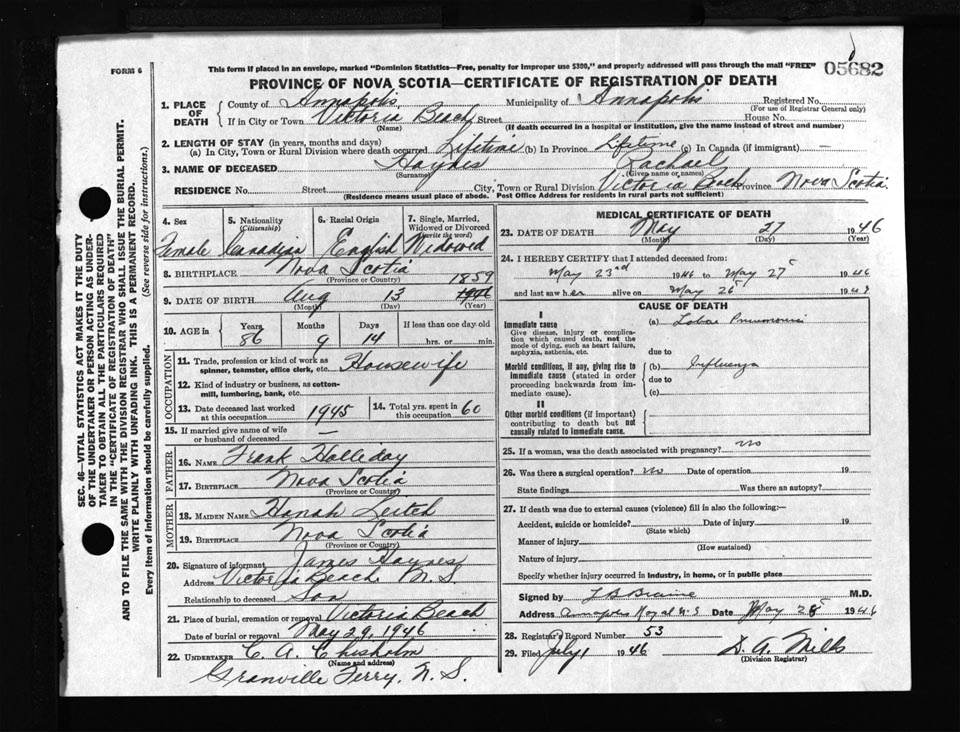 FORM 6
This form if placed in an envelope, marked "Dominion Statistics—Free, penalty for improper use $300," and properly addressed will pass through the mail "FREE"
05682
PROVINCE OF NOVA SCOTIA—CERTIFICATE OF REGISTRATION OF DEATH
1. PLACE OF DEATH County of Annapolis Municipality of Annapolis Registered No.
(For use of Registrar General only)
If in City or Town Victoria Beach Street House No.
(Name) (If death occurred in a hospital or institution, give the name instead of street and number)
2. LENGTH OF STAY (in years, months and days)
(a) In City, Town or Rural Division where death occurred Lifetime (b) In Province Lifetime (c) In Canada (if immigrant) —
3. NAME OF DECEASED Haynes Rachael
(Surname) (Given name or names)
RESIDENCE No. Street City, Town or Rural Division Victoria Beach Province Nova Scotia
(Residence means usual place of abode. Post Office Address for residents in rural parts not sufficient)
4. Sex 5. Nationality (Citizenship) 6. Racial Origin 7. Single, Married, Widowed or Divorced (write the word)
Female Canadian English Widowed
8. BIRTHPLACE Nova Scotia
(Province or Country)
1859
9. DATE OF BIRTH Aug 13
(Month) (Day) (Year)
10. AGE in Years Months Days If less than one day old
86 9 14 hrs. or min.
OCCUPATION
11. Trade, profession or kind of work as spinner, teamster, office clerk, etc. Housewife
12. Kind of industry or business, as cotton-mill, lumbering, bank, etc.
13. Date deceased last worked at this occupation 1945 14. Total yrs. spent in this occupation 60
15. If married give name of wife or husband of deceased —
FATHER
16. NAME Frank Holliday
17. BIRTHPLACE Nova Scotia
(Province or Country)
MOTHER
18. MAIDEN NAME Hanah
19. BIRTHPLACE Nova Scotia
(Province or Country)
20. Signature of informant James Haynes
Address Victoria Beach N.S.
Relationship to deceased Son
21. Place of burial, cremation or removal Victoria Beach
Date of burial or removal May 29, 1946
22. UNDERTAKER C. A. Chisholm
(Name and address)
Granville Ferry, N.S.
MEDICAL CERTIFICATE OF DEATH
23. DATE OF DEATH May 27 1946
(Month) (Day) (Year)
24. I HEREBY CERTIFY that I attended deceased from:
May 23rd 1946 to May 27 1946
and last saw her alive on May 26 194
CAUSE OF DEATH
I
Immediate cause (a) Lobar Pneumonia
Give disease, injury or complication which caused death, not the mode of dying, such as heart failure, asphyxia, asthenia, etc.
due to
Morbid conditions, if any, giving rise to immediate cause (stated in order proceeding backwards from immediate cause).
(b) Influenza
due to
(c)
II
Other morbid conditions (if important) contributing to death but not causally related to immediate cause.
25. If a woman, was the death associated with pregnancy? no
26. Was there a surgical operation? no Date of operation 19
State findings Was there an autopsy?
27. If death was due to external causes (violence) fill in also the following:—
Accident, suicide or homicide? Date of injury 19
(State which)
Manner of injury
(How sustained)
Nature of injury
Specify whether injury occurred in industry, in home, or in public place
Signed by M.D.
Address Annapolis Royal N S Date May 28 1946
28. Registrar's Record Number 53
29. Filed July 1 1946 D. A. Mills
(Division Registrar)
SEC. 46—VITAL STATISTICS ACT MAKES IT THE DUTY
OF THE UNDERTAKER OR PERSON ACTING AS UNDER-
TAKER TO OBTAIN ALL THE PARTICULARS REQUIRED
IN THE "CERTIFICATE OF REGISTRATION OF DEATH"
AND TO FILE THE SAME WITH THE DIVISION REGISTRAR WHO SHALL ISSUE THE BURIAL PERMIT.
WRITE PLAINLY WITH UNFADING INK. THIS IS A PERMANENT RECORD.
Every item of information should be carefully supplied. (See reverse side for instructions.)